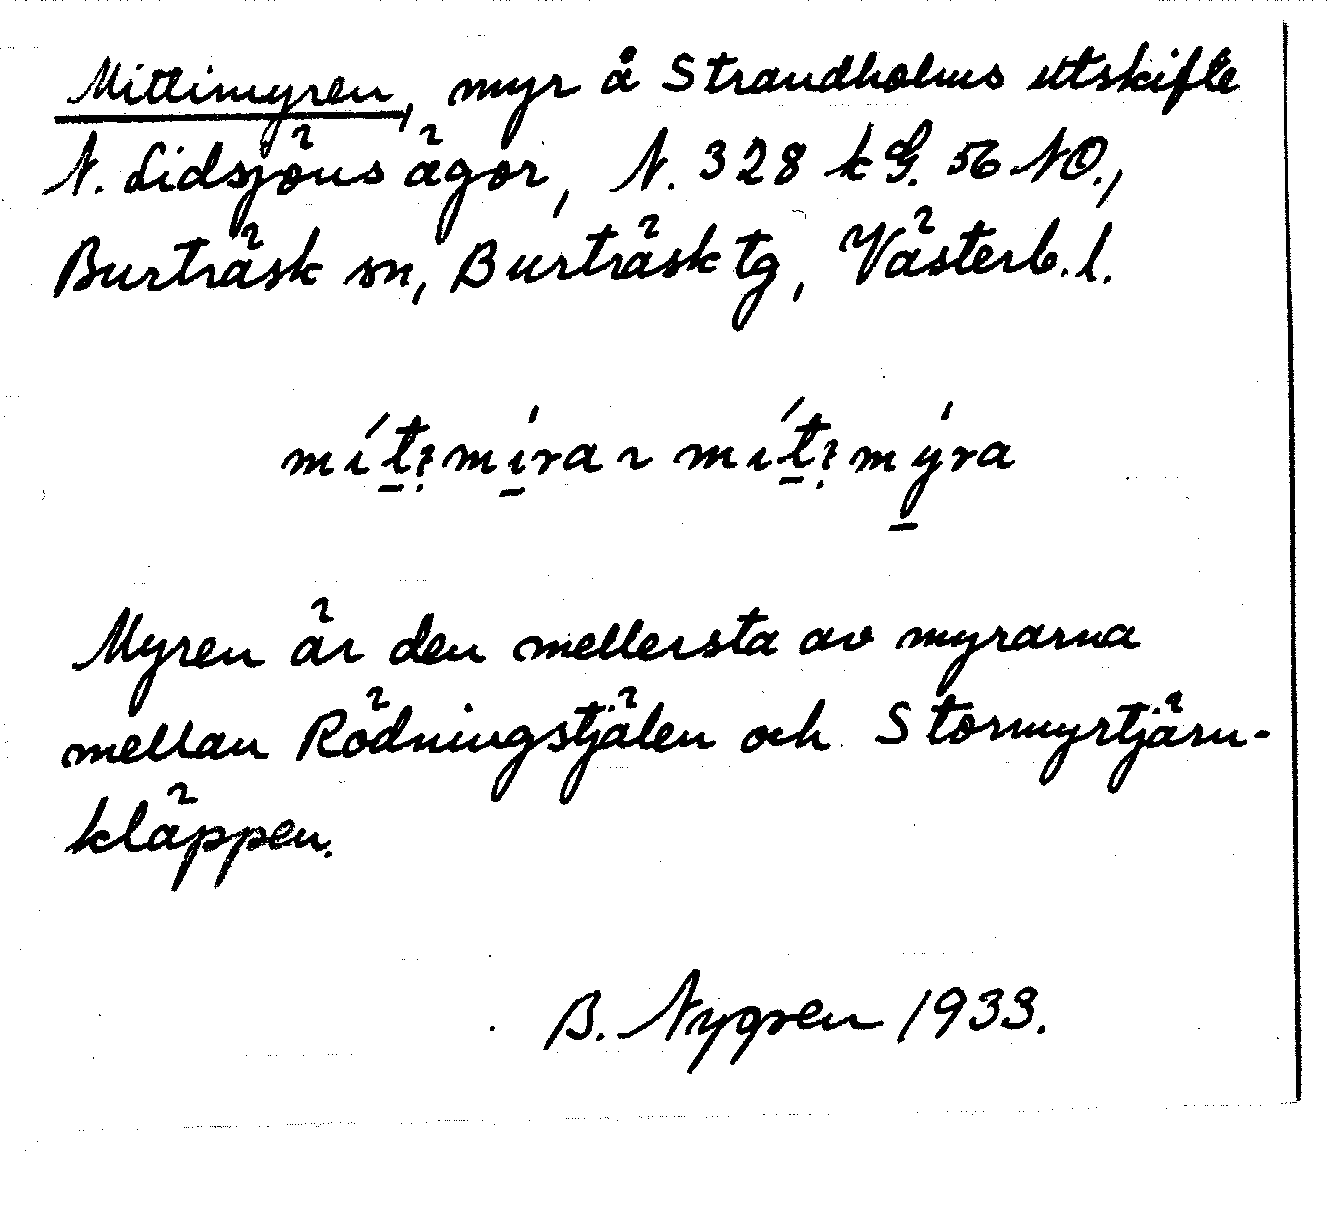 Mittimyren, myr å Strandholms utskifte
N. Lidsjöns ägor, N. 328 k G. 56 NO.,
Burträsk sn, Burträsk tg, Västerb. l.
Myren är den mellersta av myrarna
mellan Rödningstjälen och Stormyrtjärn-
kläppen.
B. Nygren 1933.